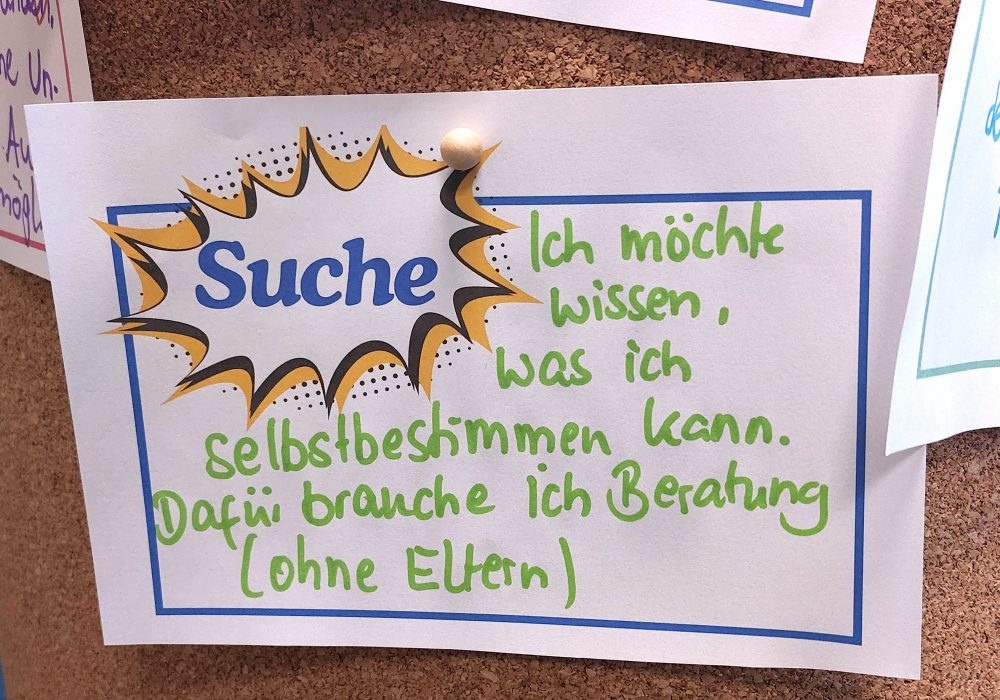 ne Un-
Suche
Ich möchte
wissen,
was ich
selbstbestimmen kann.
Dafür brauche ich Beratung
(ohne Eltern)